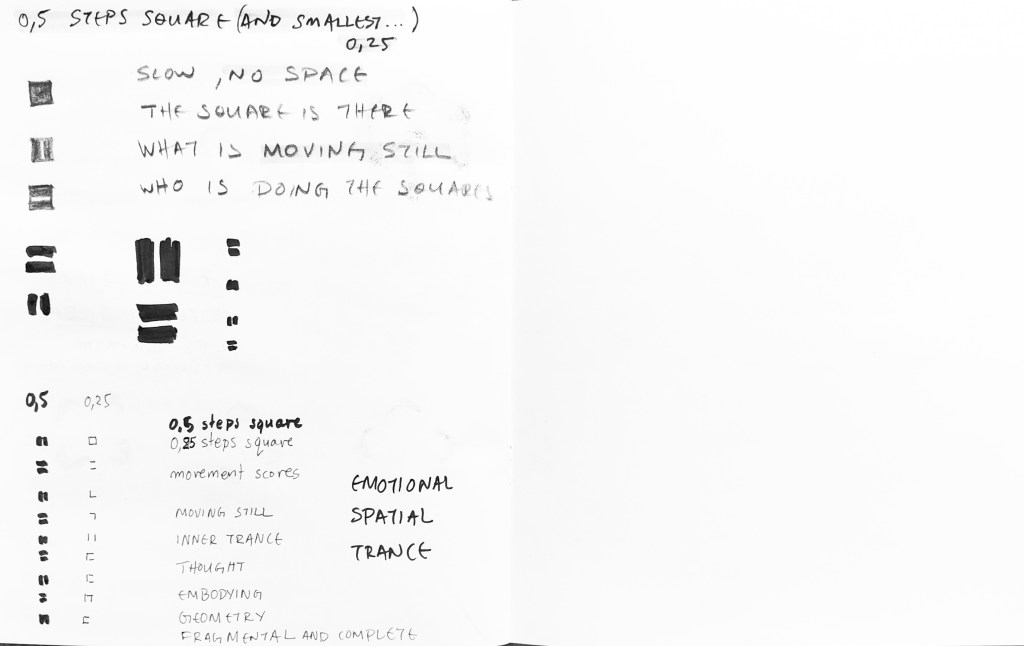 0,5 STEPS SQUARE (AND SMALLEST...)
0,25
SLOW, NO SPACE
THE SQUARE IS THERE
WHAT IS MOVING STILL
WHO IS DOING THE SQUARES
0,5 0,25
0,5 steps square
0,25 steps square
movement scores
EMOTIONAL
MOVING STILL
SPATIAL
INNER TRANCE
TRANCE
THOUGHT
EMBODYING
GEOMETRY
FRAGMENTAL AND COMPLETE